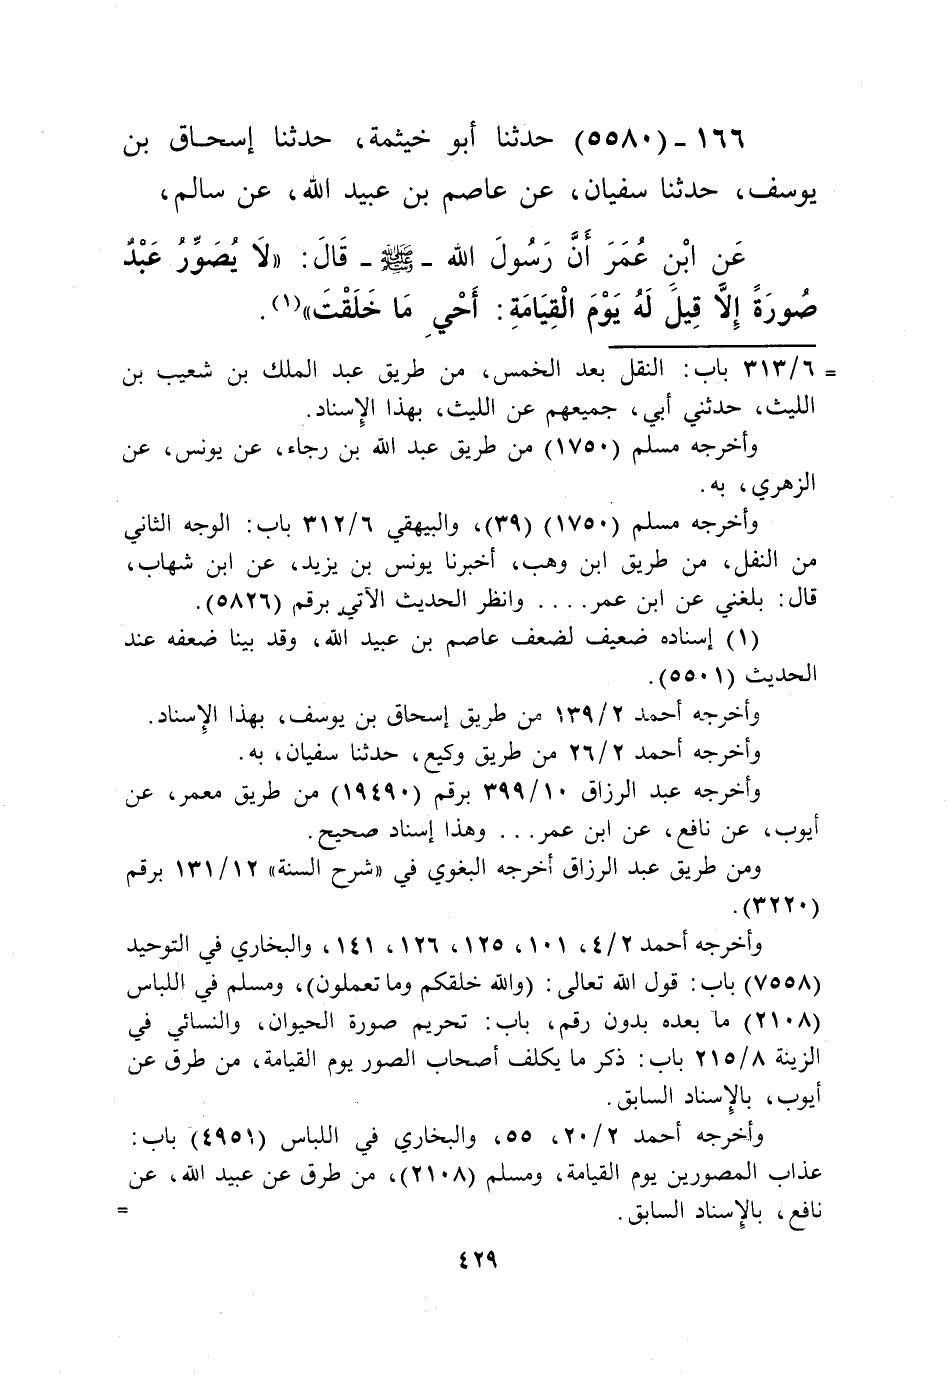 ١٦٦ ـ (٥٥٨٠) حدثنا أبو خيثمة، حدثنا إسحاق بن
يوسف، حدثنا سفيان، عن عاصم بن عبيد الله، عن سالم،
عَن ابْنِ عُمَرَ أَنَّ رَسُولَ الله ـ ﷺ ـ قَالَ: «لَا يُصَوِّرُ عَبْدٌ
صُورَةً إِلَّا قِيلَ لَهُ يَوْمَ الْقِيَامَةِ: أَحْيِ مَا خَلَقْتَ»(١).
= ٣١٣/٦ باب: النقل بعد الخمس، من طريق عبد الملك بن شعيب بن
الليث، حدثني أبي، جميعهم عن الليث، بهذا الإسناد.
وأخرجه مسلم (١٧٥٠) من طريق عبد الله بن رجاء، عن يونس، عن
الزهري، به.
وأخرجه مسلم (١٧٥٠) (٣٩)، والبيهقي ٣١٢/٦ باب: الوجه الثاني
من النفل، من طريق ابن وهب، أخبرنا يونس بن يزيد، عن ابن شهاب،
قال: بلغني عن ابن عمر.... وانظر الحديث الآتي برقم (٥٨٢٦).
(١) إسناده ضعيف لضعف عاصم بن عبيد الله، وقد بينا ضعفه عند
الحديث (٥٥٠١).
وأخرجه أحمد ١٣٩/٢ من طريق إسحاق بن يوسف، بهذا الإسناد.
وأخرجه أحمد ٢٦/٢ من طريق وكيع، حدثنا سفيان، به.
وأخرجه عبد الرزاق ٣٩٩/١٠ برقم (١٩٤٩٠) من طريق معمر، عن
أيوب، عن نافع، عن ابن عمر... وهذا إسناد صحيح.
ومن طريق عبد الرزاق أخرجه البغوي في «شرح السنة» ١٣١/١٢ برقم
(٣٢٢٠).
وأخرجه أحمد ٤/٢، ١٠١، ١٢٥، ١٢٦، ١٤١، والبخاري في التوحيد
(٧٥٥٨) باب: قول الله تعالى: (والله خلقكم وما تعملون)، ومسلم في اللباس
(٢١٠٨) ما بعده بدون رقم، باب: تحريم صورة الحيوان، والنسائي في
الزينة ٢١٥/٨ باب: ذكر ما يكلف أصحاب الصور يوم القيامة، من طرق عن
أيوب، بالإسناد السابق.
وأخرجه أحمد ٢٠/٢، ٥٥، والبخاري في اللباس (٤٩٥١) باب:
عذاب المصورين يوم القيامة، ومسلم (٢١٠٨)، من طرق عن عبيد الله، عن
نافع، بالإسناد السابق. =
٤٢٩